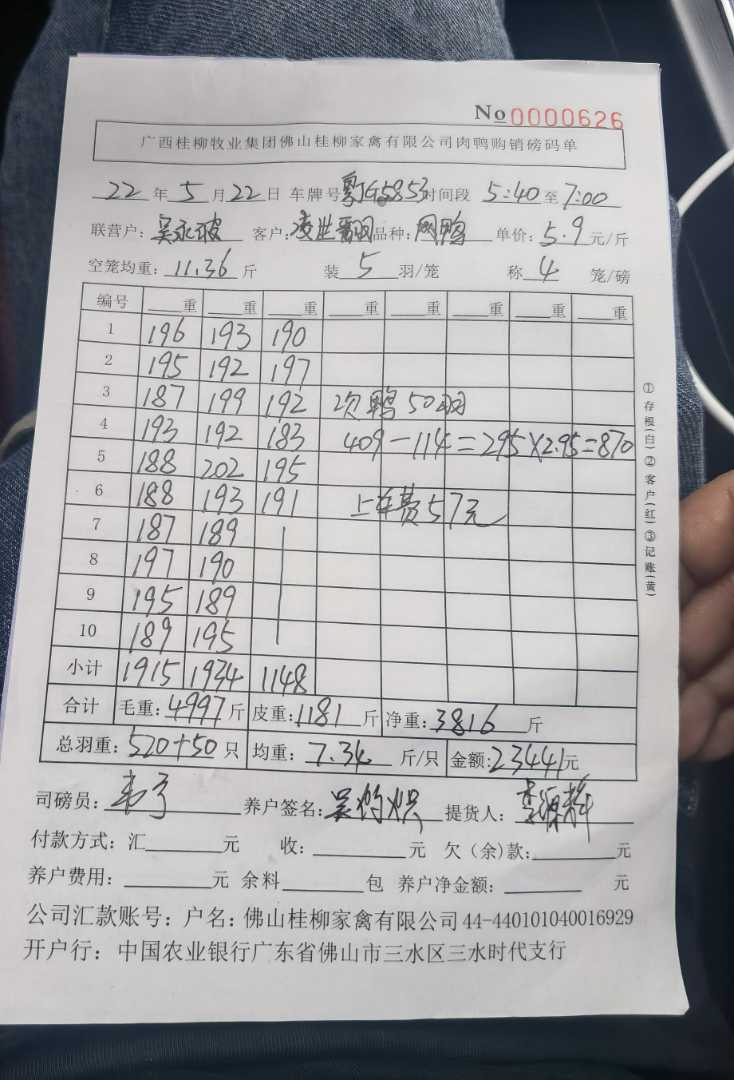 No 0000626
广西桂柳牧业集团佛山桂柳家禽有限公司肉鸭购销磅码单
22年5月22日 车牌号粤JG5853时间段 5:40至7:00
联营户:吴永波 客户:凌世 品种:肉鸭 单价:5.9元/斤
空笼均重:11.36斤 装5羽/笼 称4笼/磅
编号 重 重 重 重 重 重 重 重
1 196 193 190
2 195 192 197
3 187 199 192 次鸭50羽
4 193 192 183 409-114=295×2.95=870
5 188 202 195
6 188 193 191 上车费57元
7 187 189
8 197 190
9 195 189
10 189 195
小计 1915 1934 1148
合计 毛重:4997斤 皮重:1181斤 净重:3816斤
总羽重:520+50只 均重:7.34斤/只 金额:23441元
司磅员: 养户签名: 提货人:
付款方式:汇 元 收: 元 欠(余)款: 元
养户费用: 元 余料 包 养户净金额: 元
公司汇款账号:户名:佛山桂柳家禽有限公司44-440101040016929
开户行:中国农业银行广东省佛山市三水区三水时代支行
①存根(白)②客户(红)③记账(黄)